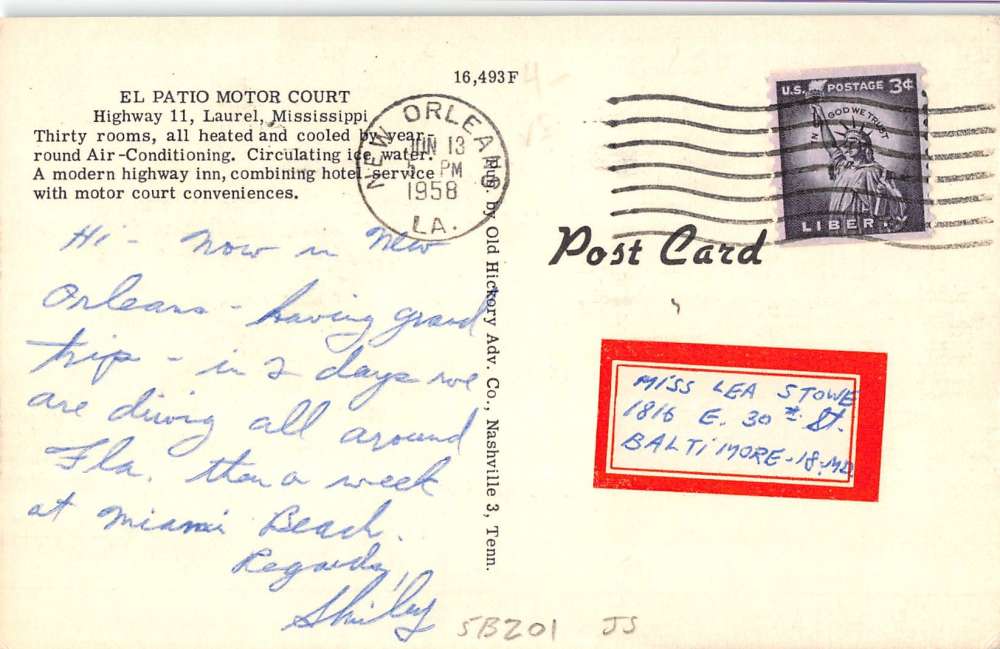 16,493F
EL PATIO MOTOR COURT
Highway 11, Laurel, Mississippi
Thirty rooms, all heated and cooled by year-
round Air-Conditioning. Circulating ice water.
A modern highway inn, combining hotel service
with motor court conveniences.
NEW ORLEANS
JUN 13
PM
1958
LA.
U.S. POSTAGE 3¢
IN GOD WE TRUST
LIBERTY
Post Card
Pub. by Old Hickory Adv. Co., Nashville 3, Tenn.
Hi - Now in New
Orleans - having grand
trip - in 2 days we
are driving all around
Fla. then a week
at Miami Beach.
Regards,
Shirley
MISS LEA STOWE
1816 E. 30th St.
BALTIMORE-18-MD
5B201 JS